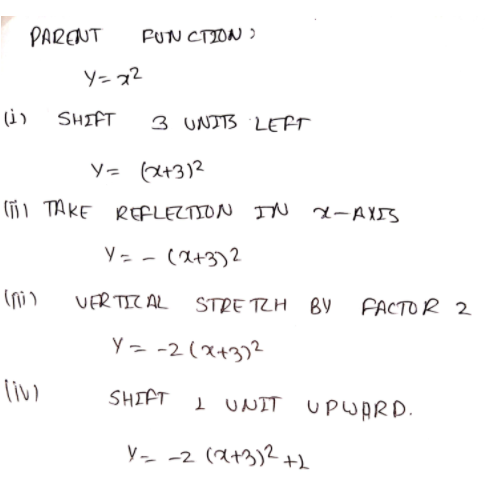 PARENT FUNCTION:
y = x²
(i) SHIFT 3 UNITS LEFT
y = (x+3)²
(ii) TAKE REFLECTION IN x-AXIS
y = - (x+3)²
(iii) VERTICAL STRETCH BY FACTOR 2
y = -2(x+3)²
(iv) SHIFT 1 UNIT UPWARD.
y = -2 (x+3)² +1